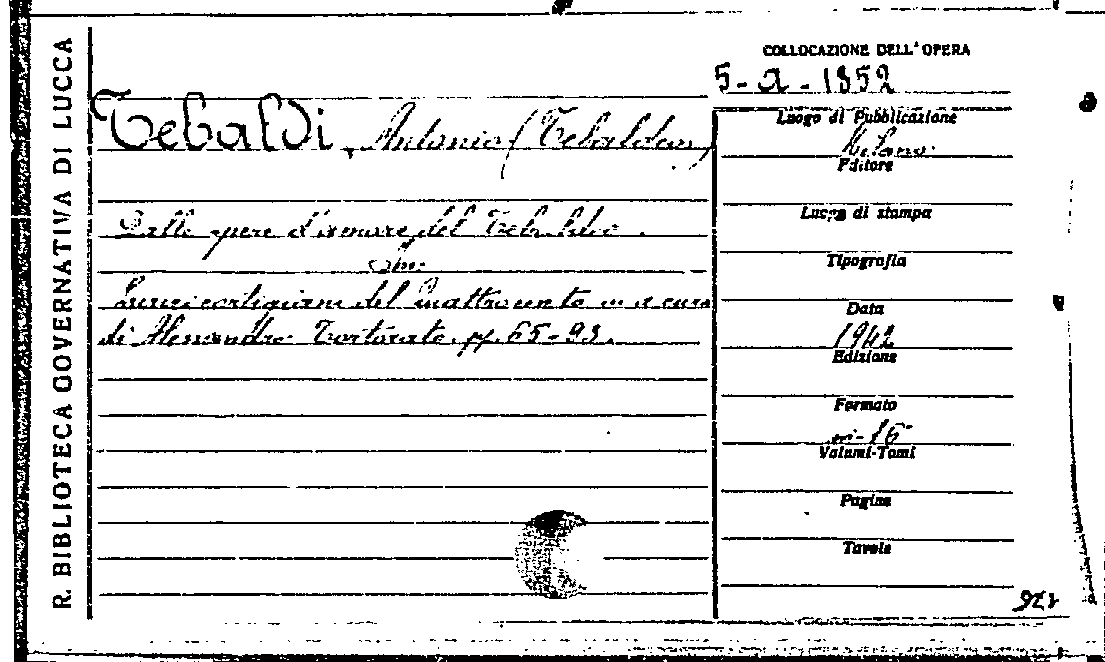 R. BIBLIOTECA GOVERNATIVA DI LUCCA
COLLOCAZIONE DELL'OPERA
5-a-1852
Tebaldi, Antonio (Tebaldeo)
Dalle opere d'amore del Tebaldeo.
Lirici cortigiani del Quattrocento a cura
di Alessandro Tortorato. pp. 65-93.
Luogo di Pubblicazione
Milano.
Editore
Luogo di stampa
Tipografia
Data
1942
Edizione
Formato
in-16°
Volumi-Tomi
Pagine
Tavole